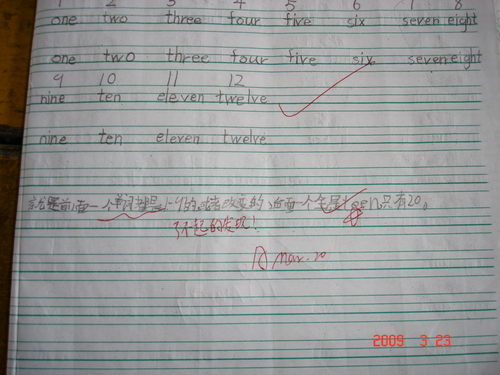 1 2 3 4 5 6 7 8
one two three four five six seven eight
one two three four five six seven eight
9 10 11 12
nine ten eleven twelve
nine ten eleven twelve
前面一个单词都是1-9的,或者改变的,后面一个全是teen只有20。
了不起的发现!
Mar. 20
2009 3 23